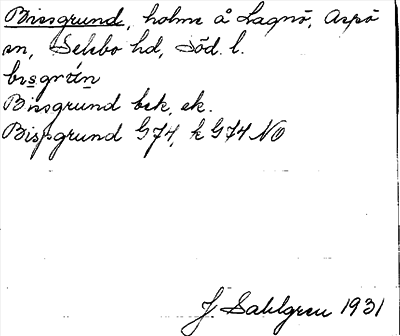 Bissgrund, holme å Lagnö, Aspö
sn, Selebo hd, Söd. l.
bisgrún
Bissgrund bek, ek.
Bispgrund G74, k G74 NO
J Sahlgren 1931